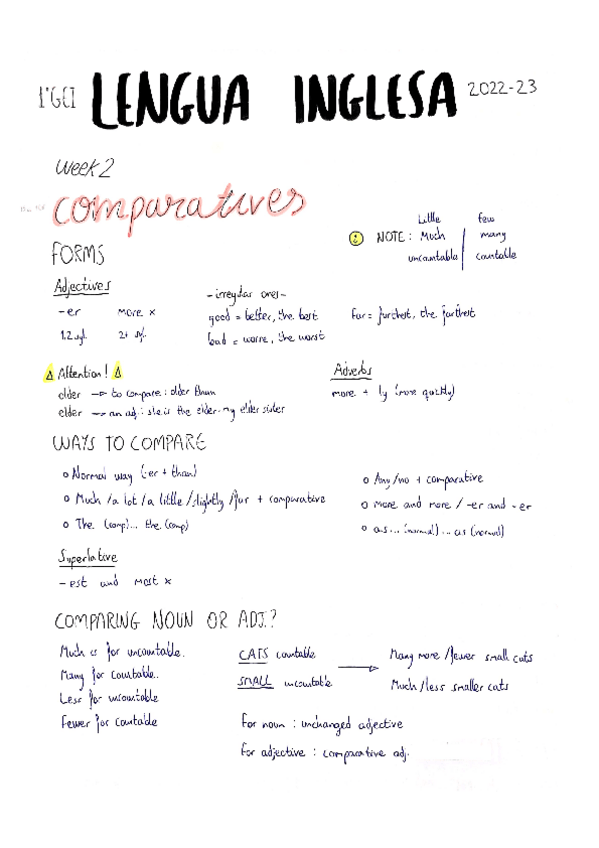 1ºGEI LENGUA INGLESA 2022-23
Week 2
comparatives
FORMS
Little few
NOTE: Much many
uncountable countable
Adjectives
-er more x
1.2 syl. 2+ syl.
-irregular ones-
good = better, the best
bad = worse, the worst
Far = furthest, the farthest
Attention!
older → to compare: older than
elder → an adj: she is the elder. my elder sister
Adverbs
more + ly (more quickly)
WAYS TO COMPARE
Normal way (-er + than)
Much /a lot /a little /slightly /far + comparative
The (comp)... the (comp)
Any/no + comparative
more and more / -er and -er
as... (normal)... as (normal)
Superlative
- est and most x
COMPARING NOUN OR ADJ.?
Much is for uncountable.
Many for countable.
Less for uncountable
Fewer for countable
CATS countable
SMALL uncountable
→
Many more /fewer small cats
Much /less smaller cats
For noun : unchanged adjective
For adjective : comparative adj.